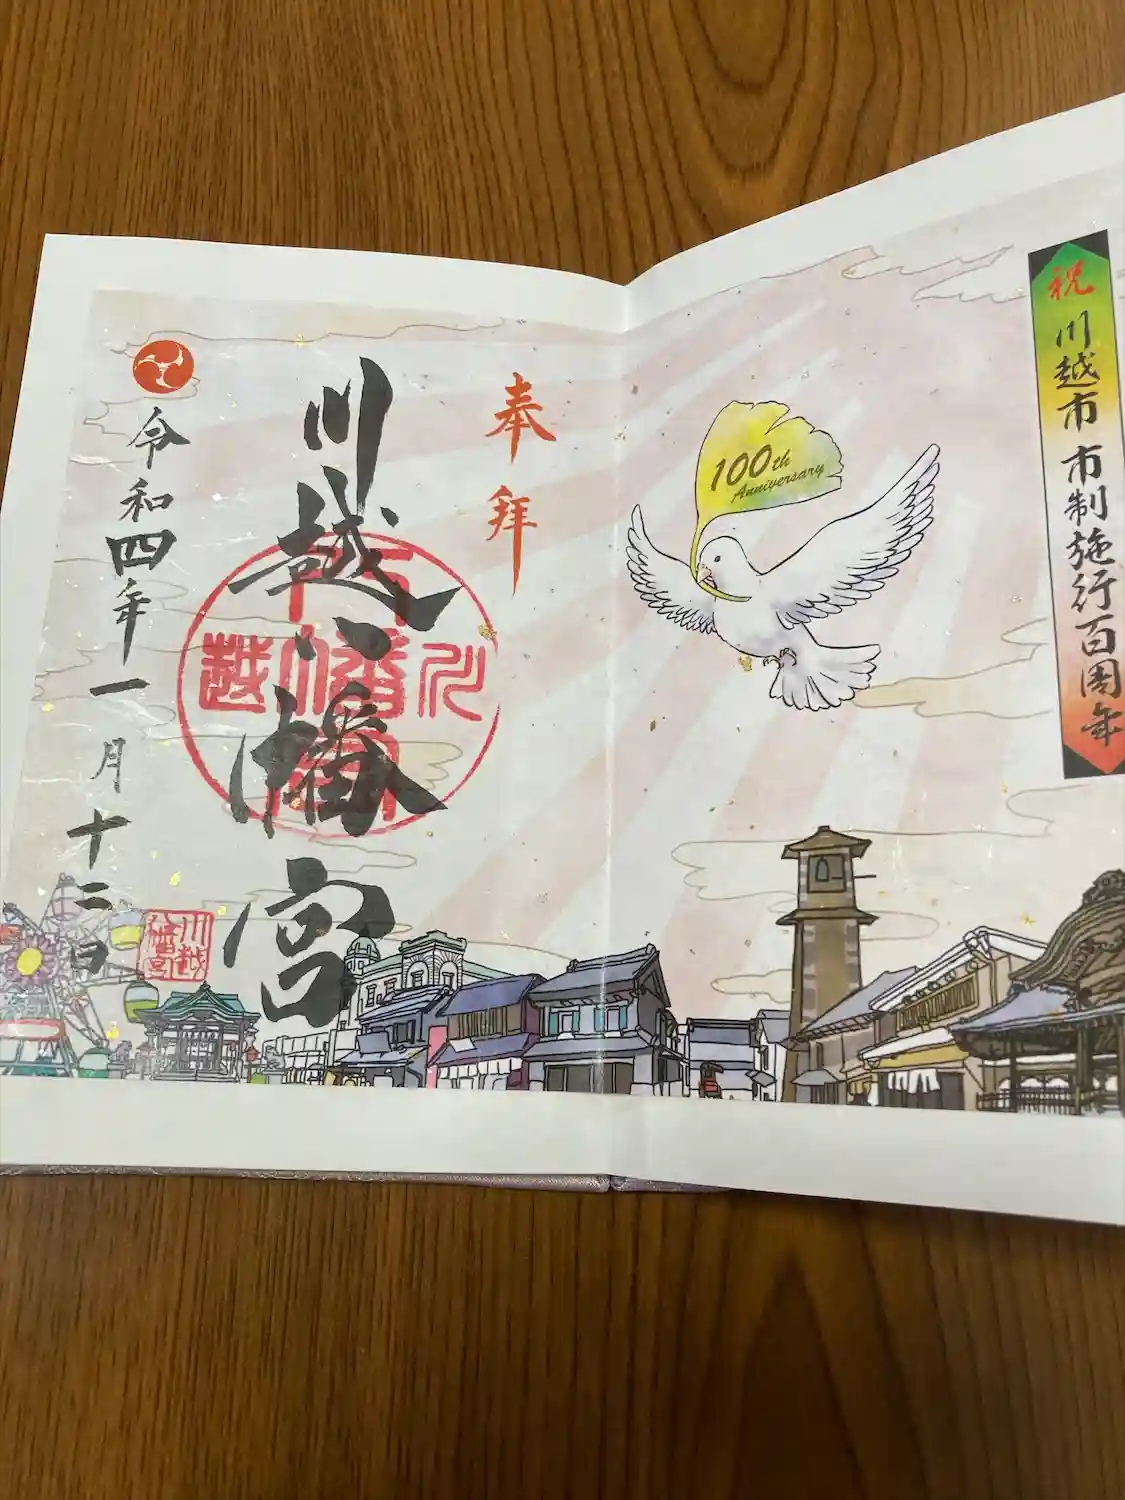 祝 川越市 市制施行百周年
100th
Anniversary
奉拝
川越八幡宮
令和四年一月十二日
川越
八幡宮